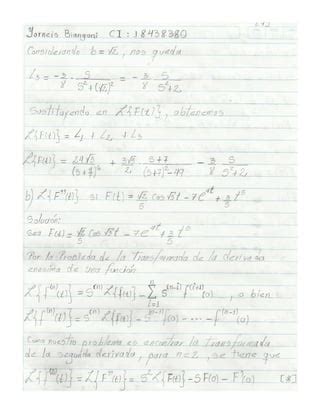 Yorneis Biangoni C I : 18438380
Considerando b = √2, nos queda
L₃ = - 3/8 S/(S²+(√2)²) = - 3/8 S/(S²+2)
Sustituyendo en L{F(t)}, obtenemos
L{F(t)} = L₁ + L₂ + L₃
b) L{F''(t)} si F(t) = Cos √5t - 7e + 3/5 t⁵
Solución:
Sea F(t) = Cos √5t - 7e + 3/5 t⁵
Por la Propiedad de la Transformada de la derivada
enesima de una función
L{f⁽ⁿ⁾(t)} = S⁽ⁿ⁾ L{f(t)} - Σ f (0) , o bien
L{f⁽ⁿ⁾(t)} = S⁽ⁿ⁾ L{f(t)} - S f(0) - ... - f⁽ⁿ⁻¹⁾(0)
Como nuestro problema es encontrar la Transformada
de la segunda derivada, para n=2, se tiene que
L{f⁽ⁿ⁾(t)} = L{F''(t)} = S² L{F(t)} - SF(0) - F'(0) [*]